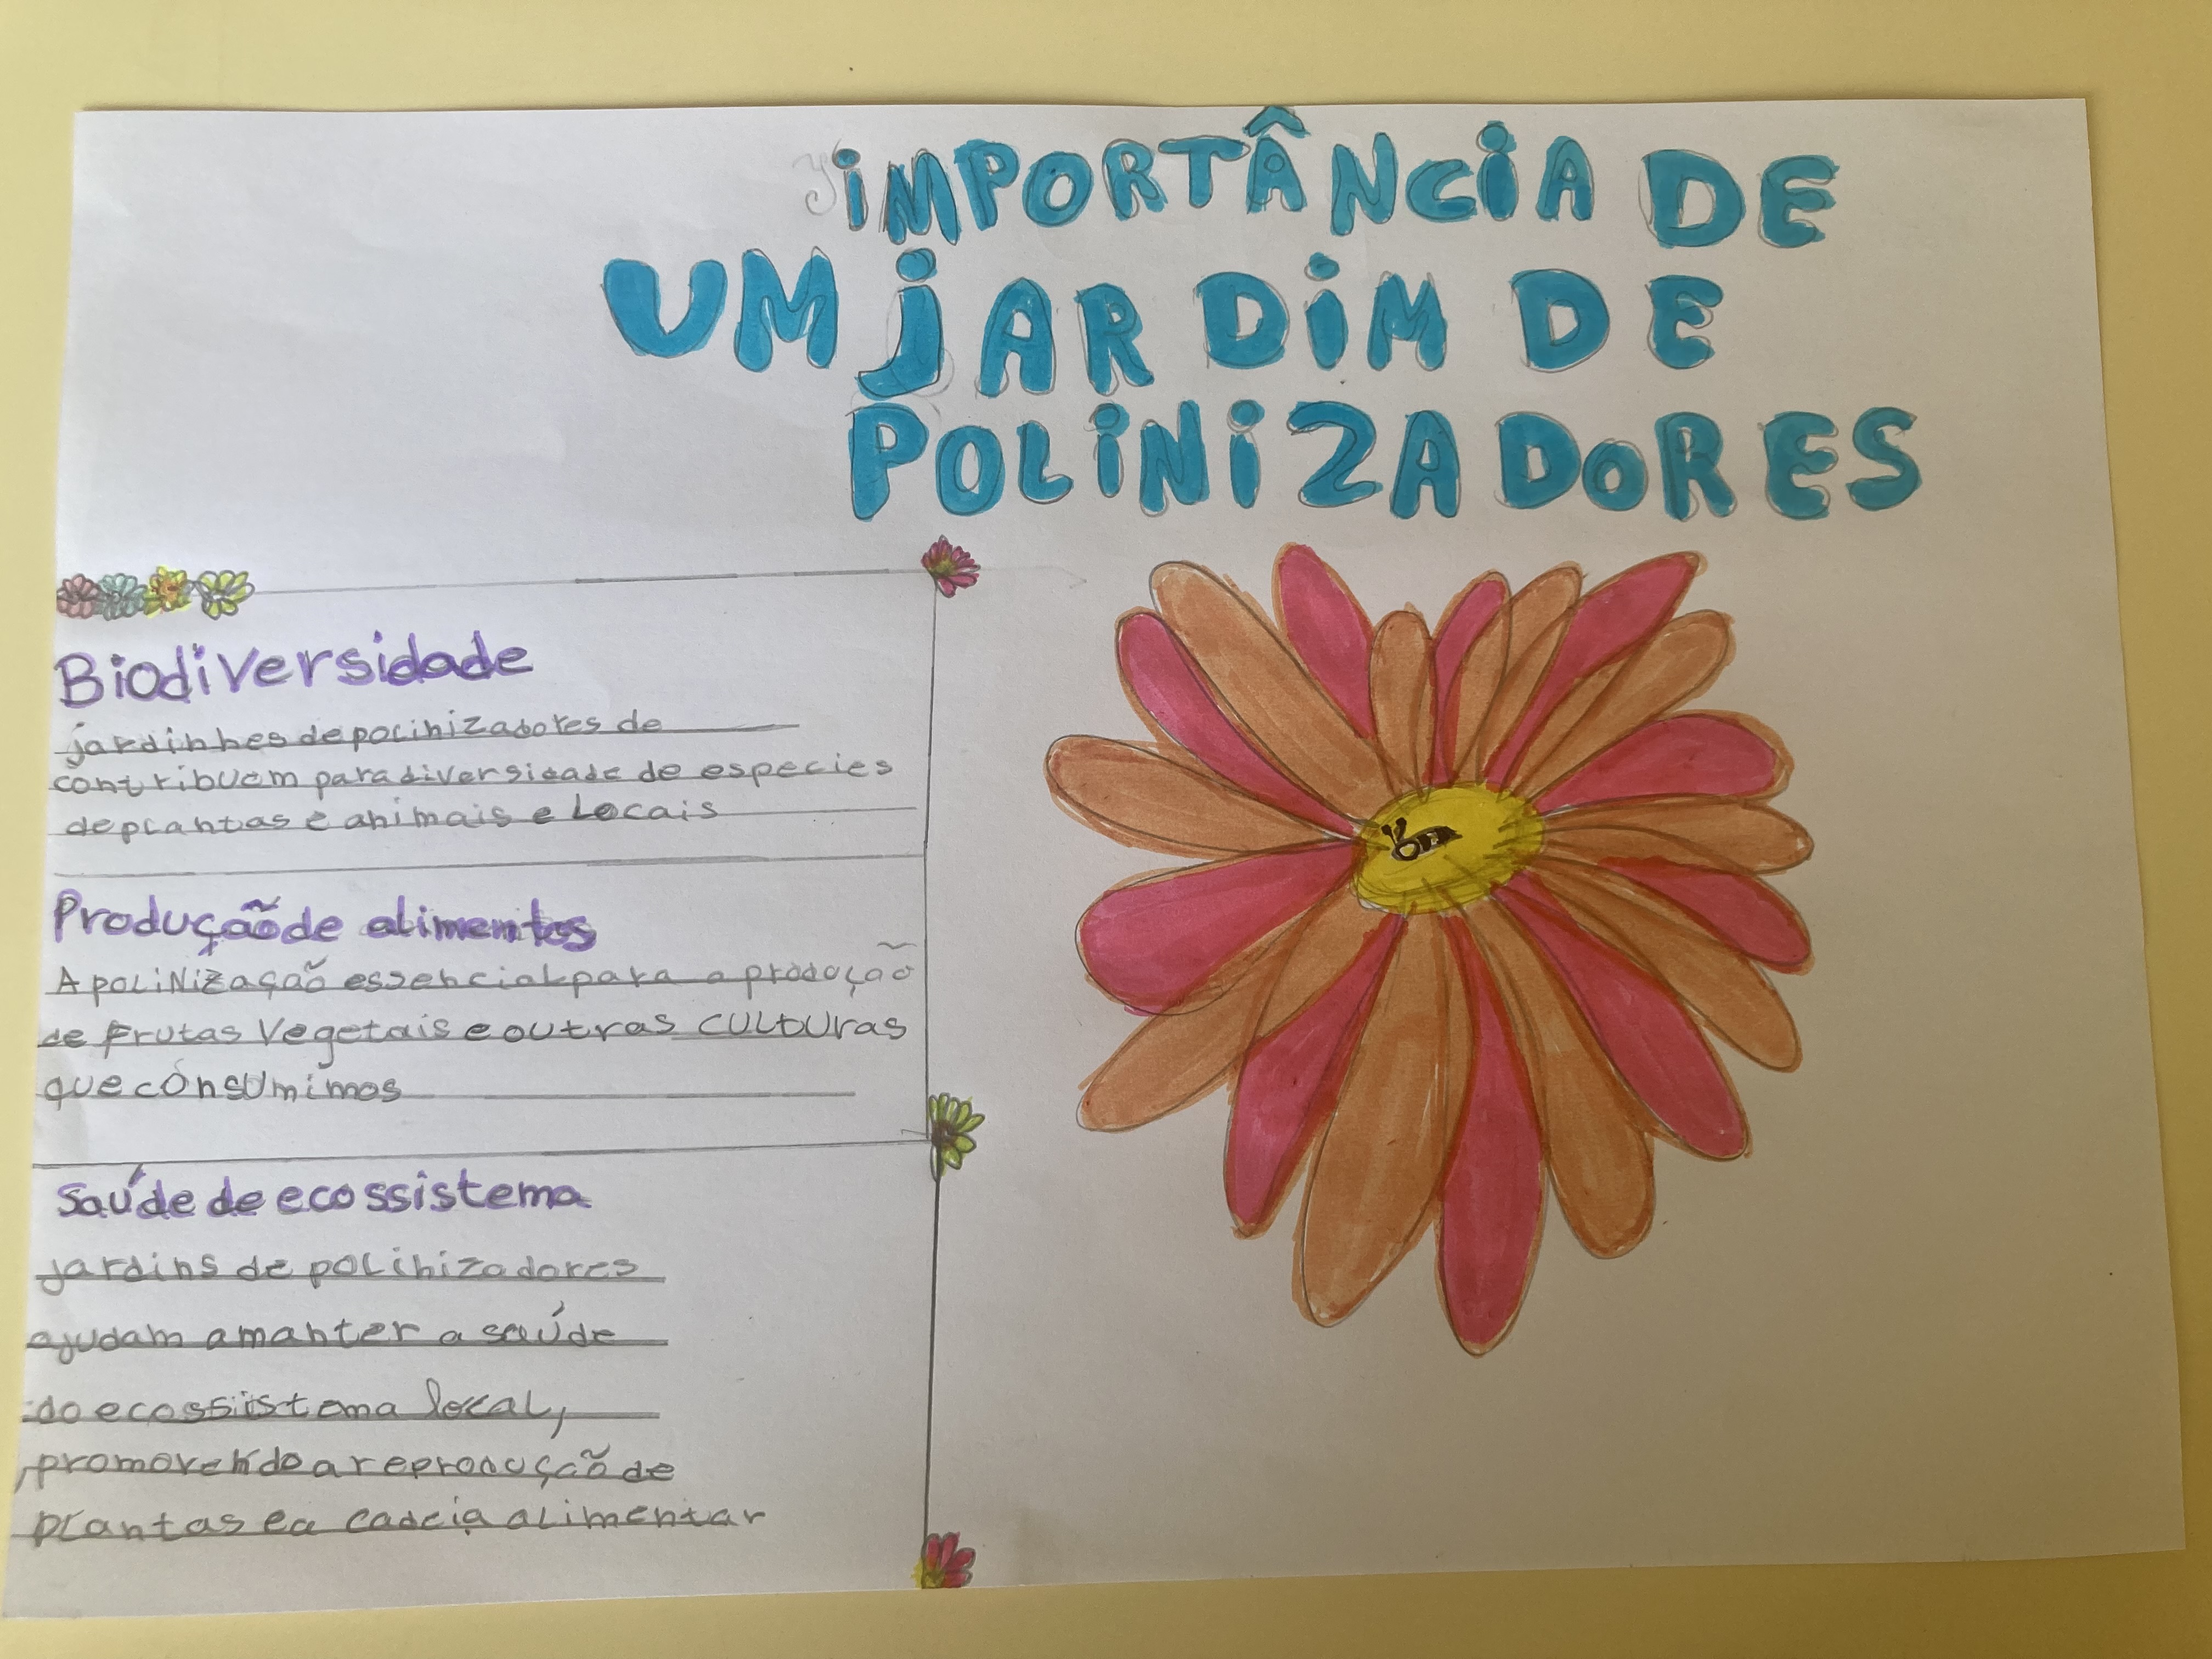 IMPORTÂNCIA DE
UM JARDIM DE
POLINIZADORES
Biodiversidade
jardinhes de polinizadores de
contribuem para diversidade de especies
de plantas e animais e Locais
Produção de alimentos
A poliNização essencial para a produção
de Frutas Vegetais e outras CULTUras
que consumimos
Saúde de ecossistema
jardins de polinizadores
ajudam a manter a saúde
do ecossiistema local,
promovendo a reprodução de
plantas e a cadeia alimentar